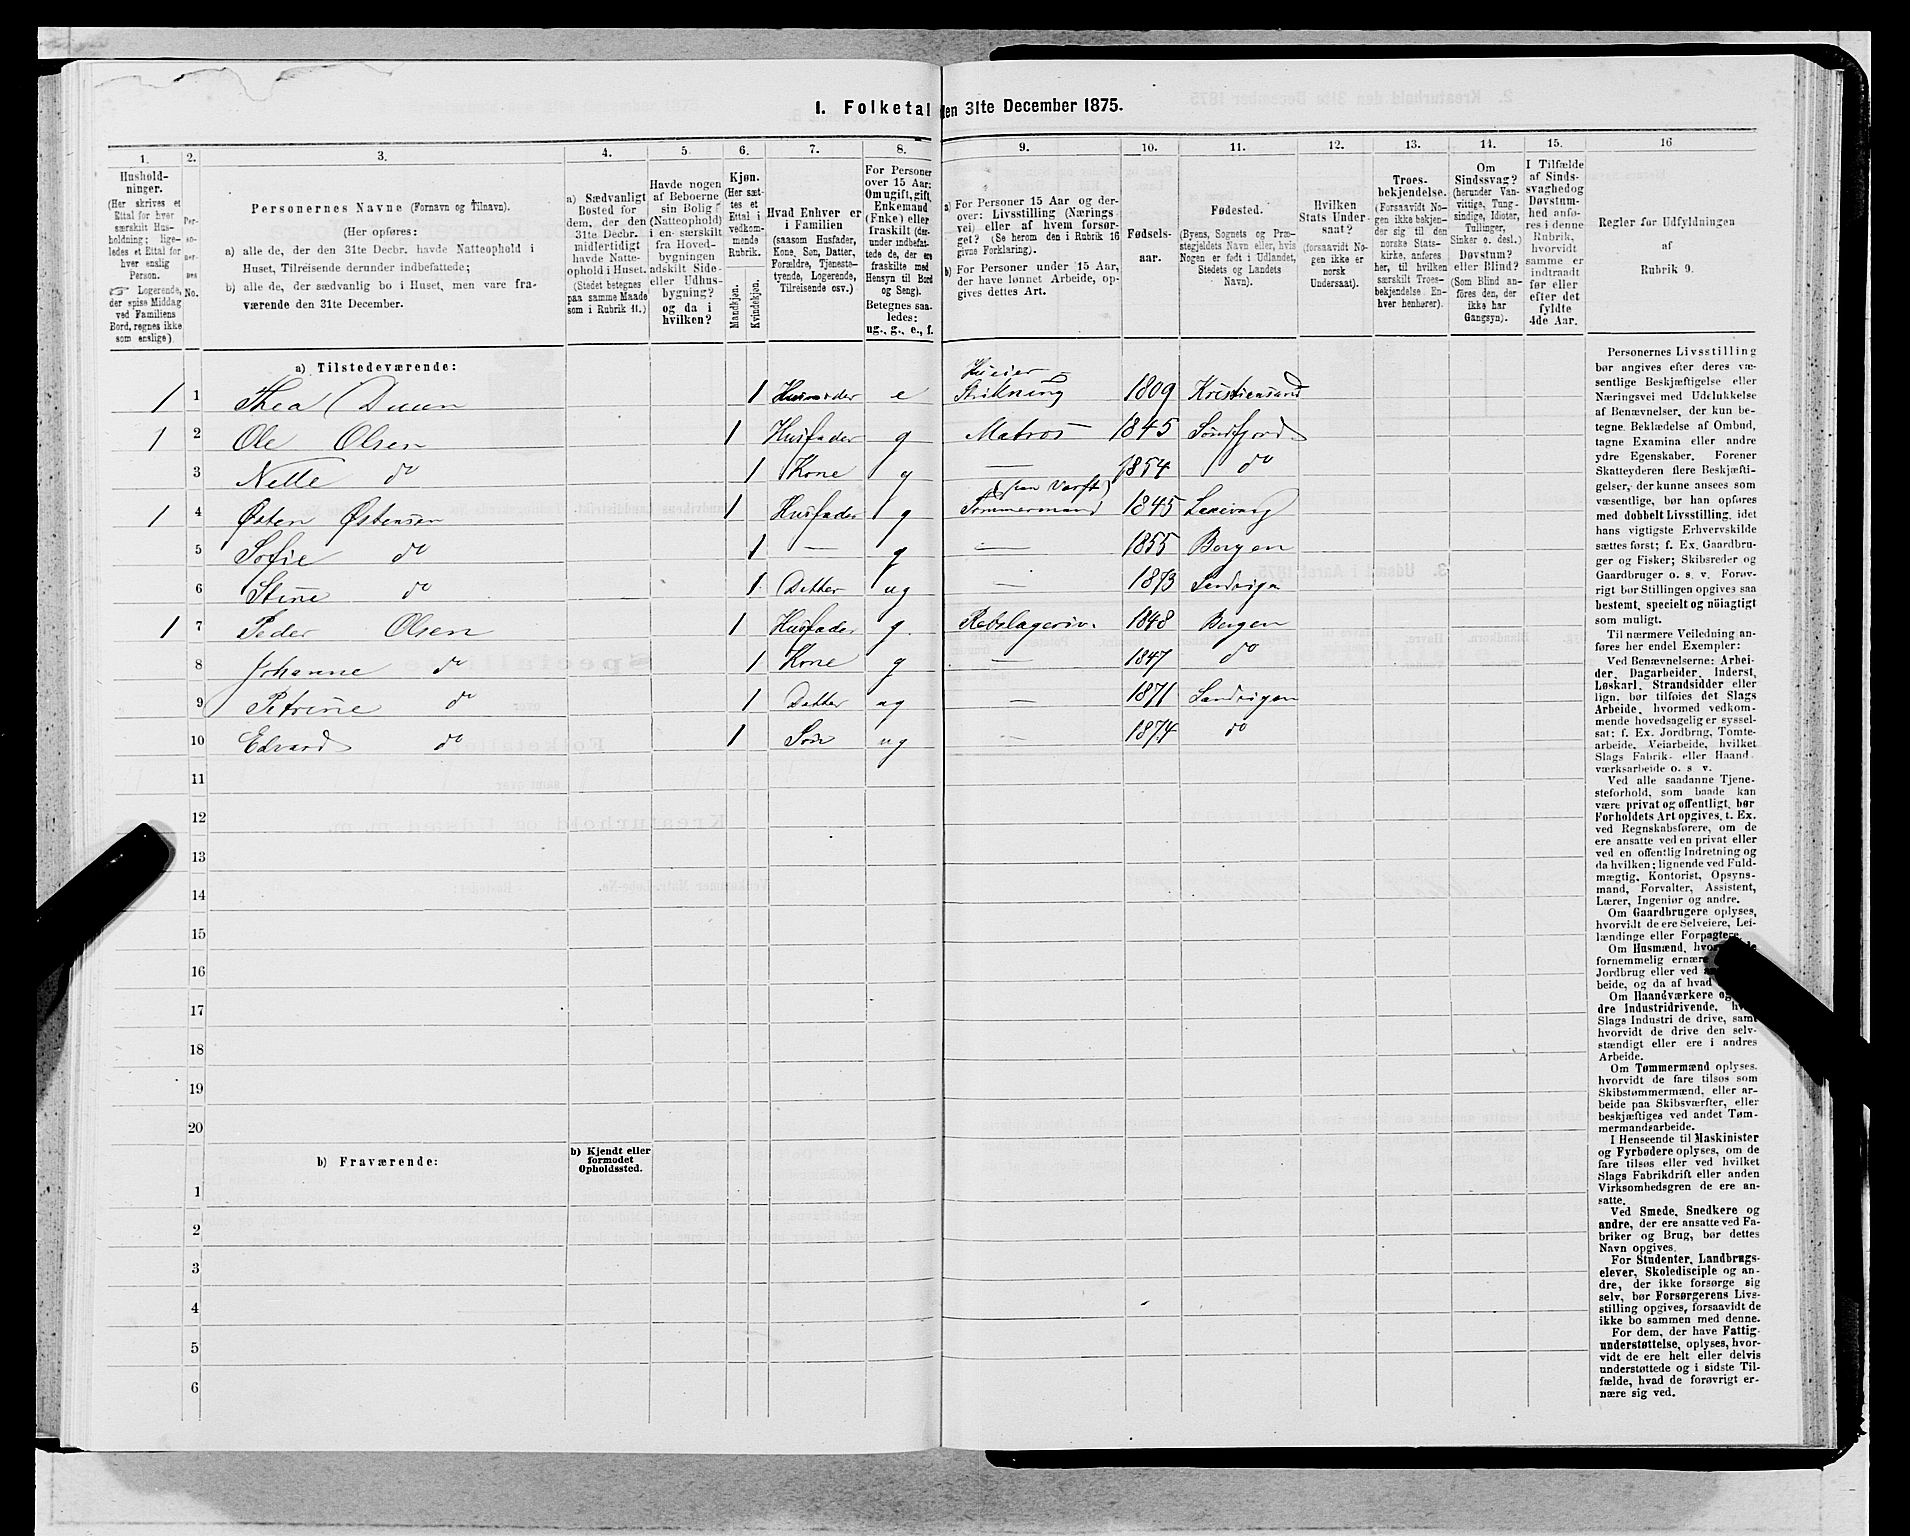 1. Folketal den 31te December 1875.
1. 2. 3. 4. 5. 6. 7. 8. 9. 10. 11. 12. 13. 14. 15. 16
Hushold-
ninger.
(Her skrives et
Ettal for hver
særskilt Hus-
holdning; lige-
ledes et Ettal for
hver enslig
Person.
Logerende,
der spise Middag
ved Familiens
Bord, regnes ikke
som enslige).
Per-
so-
ner-
nes
No.
Personernes Navne (Fornavn og Tilnavn).
(Her opføres:
a) alle de, der den 31te Decbr. havde Natteophold i
Huset, Tilreisende derunder indbefattede;
b) alle de, der sædvanlig bo i Huset, men vare fra-
værende den 31te December.
a) Sædvanligt
Bosted for
dem, der den
31te Decbr.
midlertidigt
havde Natte-
ophold i Huset.
(Stedet betegnes
paa samme Maade
som i Rubrik 11.)
Havde nogen
af Beboerne
sin Bolig
(Natteophold)
i en særskilt
fra Hoved-
bygningen
adskilt Side-
eller Udhus-
bygning?
og da i
hvilken?
Kjøn.
(Her sæt-
tes et
Ettal i
vedkom-
mende
Rubrik.
Mandkjøn.
Kvindekjøn.
Hvad Enhver er
i Familien
(saasom Husfader,
Kone, Søn, Datter,
Forældre, Tjeneste-
tyende, Logerende,
Tilreisende osv.)
For Personer
over 15 Aar:
Om ugift, gift,
Enkemand
(Enke) eller
fraskilt (der-
under indbefat-
tede de, der ere
fraskilte med
Hensyn til Bord
og Seng).
Betegnes saa-
ledes:
ug., g., e., f.
a) For Personer 15 Aar og der-
over: Livsstilling (Nærings-
vei) eller af hvem forsør-
get? (Se herom den i Rubrik 16
givne Forklaring).
b) For Personer under 15 Aar,
der have lønnet Arbeide, op-
gives dettes Art.
Fødsels-
aar.
Fødested.
(Byens, Sognets og Præ-
stegjeldets Navn eller, hvis
Nogen er født i Udlandet,
Stedets og Landets
Navn).
Hvilken
Stats Under-
saat?
(forsaavidt No-
gen ikke er
norsk
Undersaat).
Troes-
bekjendelse.
(Forsaavidt No-
gen ikke bekjen-
der sig til den
norske Stats-
kirke, anføres
her, til hvilken
særskilt Troes-
bekjendelse En-
hver henhører).
Om
Sindssvag?
(herunder Van-
vittige, Tung-
sindige, Idioter,
Tullinger,
Sinker o. desl.)
Døvstum?
eller Blind?
(Som Blind an-
føres den, der
ikke har
Gangsyn).
I Tilfælde
af Sinds-
svaghed og
Døvstum-
hed anfø-
res i denne
Rubrik,
hvorvidt
samme er
indtraadt
før eller
efter det
fyldte
4de Aar.
Regler for Udfyldningen
af
Rubrik 9.
a) Tilstedeværende:
1 1 Thea Duun 1 e Strikning 1809 Kristiansand
1 2 Ole Olsen 1 Husfader g Matros 1845 Søndfjord
3 Nelle do 1 Kone g — 1854 do
(paa Værft)
1 4 Østen Østensen 1 Husfader g Tømmermand 1845
5 Sofie do 1 — g — 1855 Bergen
6 Stine do 1 Datter ug — 1873 Sandvigen
1 7 Peder Olsen 1 Husfader g. 1848 Bergen
8 Johanne do 1 Kone g — 1847 do
9 Petrine do 1 Datter ug — 1871 Sandvigen
10 Edvard do 1 Søn ug — 1874 do
11
12
13
14
15
16
17
18
19
20
b) Fraværende:
b) Kjendt eller
formodet
Opholdssted.
1
2
3
4
5
6
Personernes Livsstilling
bør angives efter deres væ-
sentlige Beskjæftigelse eller
Næringsvei med Udelukkelse
af Benævnelser, der kun be-
tegne Beklædelse af Ombud,
tagne Examina eller andre
ydre Egenskaber. Forener
Skatteyderen flere Beskjæfti-
gelser, der kunne ansees som
væsentlige, bør han opføres
med dobbelt Livsstilling, idet
hans vigtigste Erhvervskilde
sættes først; f. Ex. Gaardbru-
ger og Fisker; Skibsreder og
Gaardbruger o. s. v. Forøv-
rigt bør Stillingen opgives saa
bestemt, specielt og nøiagtigt
som muligt.
Til nærmere Veiledning an-
føres her endel Exempler:
Ved Benævnelserne: Arbei-
der, Dagarbeider, Inderst,
Løskarl, Strandsidder eller
lign. bør tilføies det Slags
Arbeide, hvormed vedkom-
mende hovedsagelig er syssel-
sat; f. Ex. Jordbrug, Tomte-
arbeide, Veiarbeide, hvilket
Slags Fabrik- eller Haand-
værksarbeide o. s. v.
Ved alle saadanne Tjene-
steforhold, som baade kan
være privat og offentligt, bør
Forholdets Art opgives, t. Ex.
ved Regnskabsførere, om de
ere ansatte ved en privat eller
ved en offentlig Indretning og
da hvilken; lignende ved Fuld-
mægtig, Kontorist, Opsyns-
mand, Forvalter, Assistent,
Lærer, Ingeniør og andre.
Om Gaardbrugere oplyses,
hvorvidt de ere Selveiere, Lei-
lændinge eller Forpagtere.
Om Husmænd,
fornemmelig ernære
Jordbrug eller ved
beide, og da af hvad
Om Haandværkere og
dre Industridrivende,
Slags Industri de drive, samt
hvorvidt de drive den selv-
stændigt eller ere i andres
Arbeide.
Om Tømmermænd oplyses,
hvorvidt de fare tilsøs som
Skibstømmermænd, eller ar-
beide paa Skibsværfter, eller
beskjæftiges ved andet Tøm-
mermandsarbeide.
I Henseende til Maskinister
og Fyrbødere oplyses, om de
fare tilsøs eller ved hvilket
Slags Fabrikdrift eller anden
Virksomhedsgren de ere an-
satte.
Ved Smede, Snedkere og
andre, der ere ansatte ved Fa-
briker og Brug, bør dettes
Navn opgives.
For Studenter, Landbrugs-
elever, Skoledisciple og an-
dre, der ikke forsørge sig
selv, bør Forsørgerens Livs-
stilling opgives, forsaavidt de
ikke bo sammen med denne.
For dem, der have Fattig-
understøttelse, oplyses, hvor-
vidt de ere helt eller delvis
understøttede og i sidste Til-
fælde, hvad de forøvrigt er-
nære sig ved.